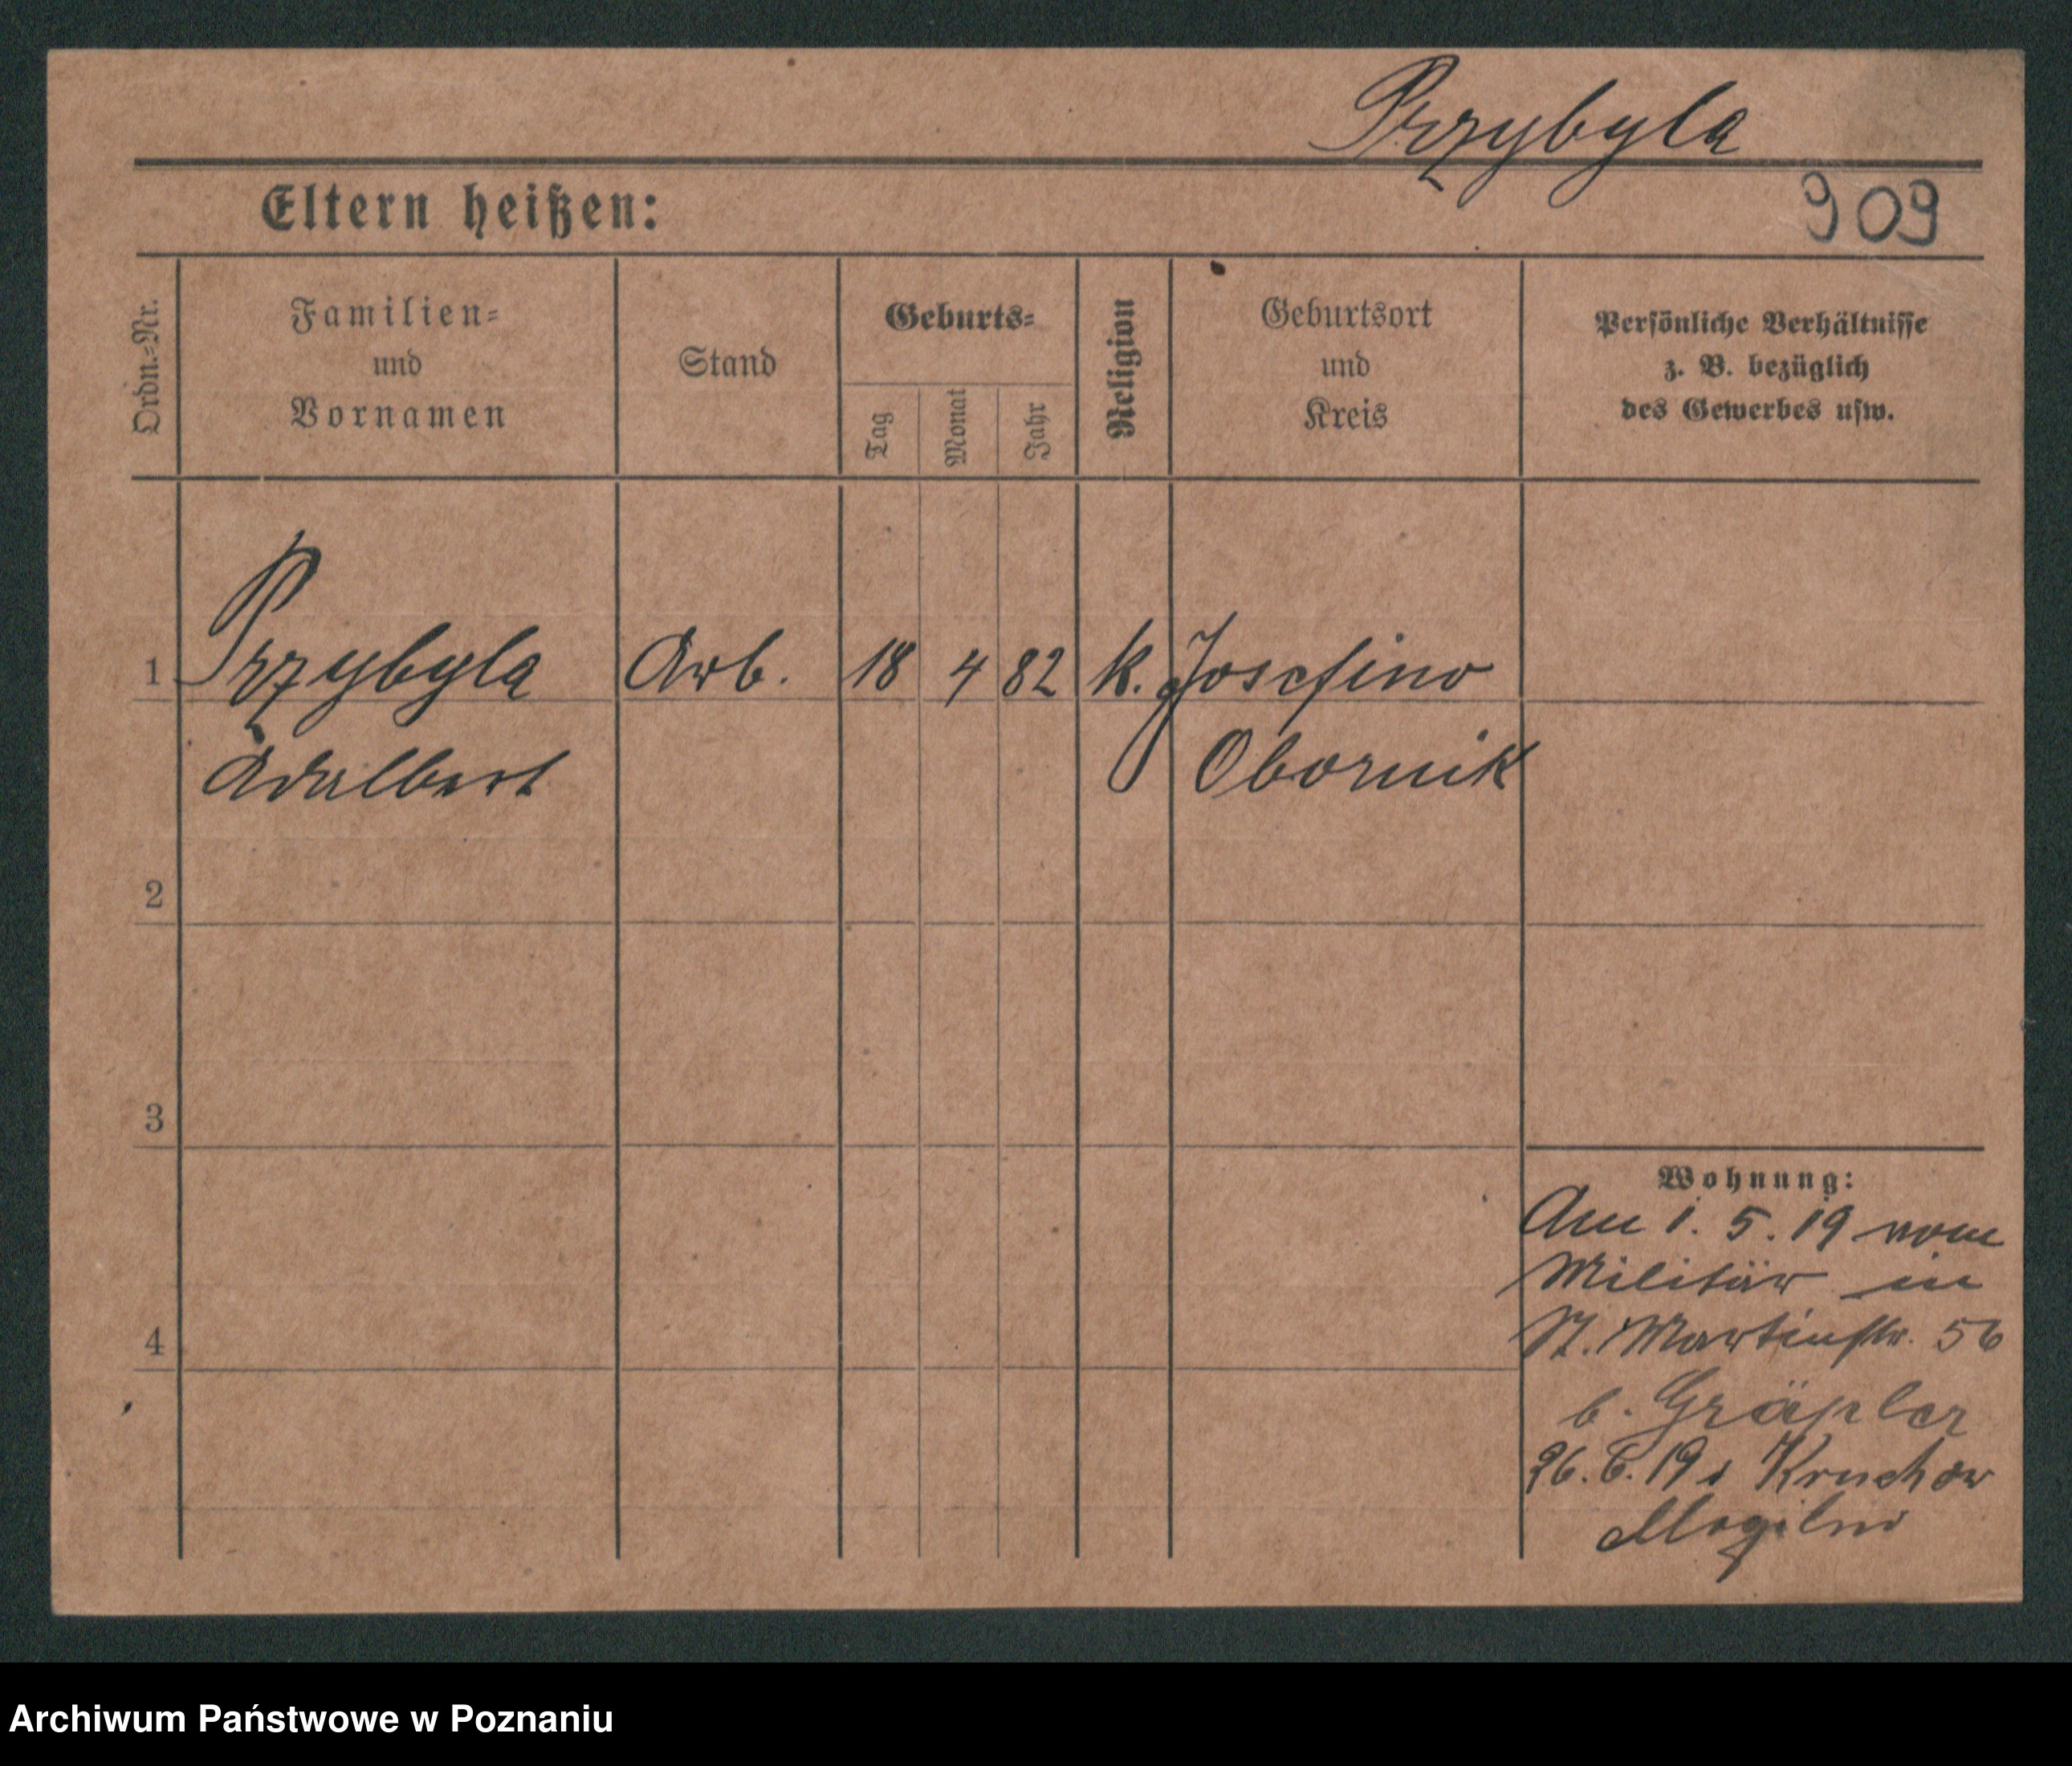 Przybyla
Eltern heißen:
909
Ordn.=Nr.
Familien=
und
Vornamen
Stand
Geburts=
Tag
Monat
Jahr
Religion
Geburtsort
und
Kreis
Persönliche Verhältnisse
z. B. bezüglich
des Gewerbes usw.
1 Przybyla Arb. 18 4 82 k. Josefino
Adalbert Obornik
2
3
Wohnung:
Am 1. 5. 19 vom
Militär in
St. Martinstr. 56
4
b. Gräpler
26. 6. 19 Kruchow
Mogilno
Archiwum Państwowe w Poznaniu